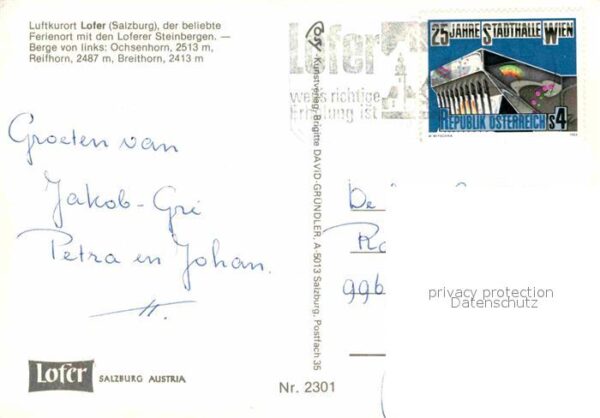 Luftkurort Lofer (Salzburg), der beliebte
Ferienort mit den Loferer Steinbergen. —
Berge von links: Ochsenhorn, 2513 m,
Reifhorn, 2487 m, Breithorn, 2413 m
Lofer
wenns richtige
Erholung ist
25 JAHRE STADTHALLE WIEN
REPUBLIK ÖSTERREICH S4
Groeten van
Jakob-Gré
Petra en Johan.
Kunstverlag Brigitte DAVID-GRÜNDLER, A-5013 Salzburg, Postfach 35
De
996
privacy protection
Datenschutz
Lofer SALZBURG AUSTRIA
Nr. 2301